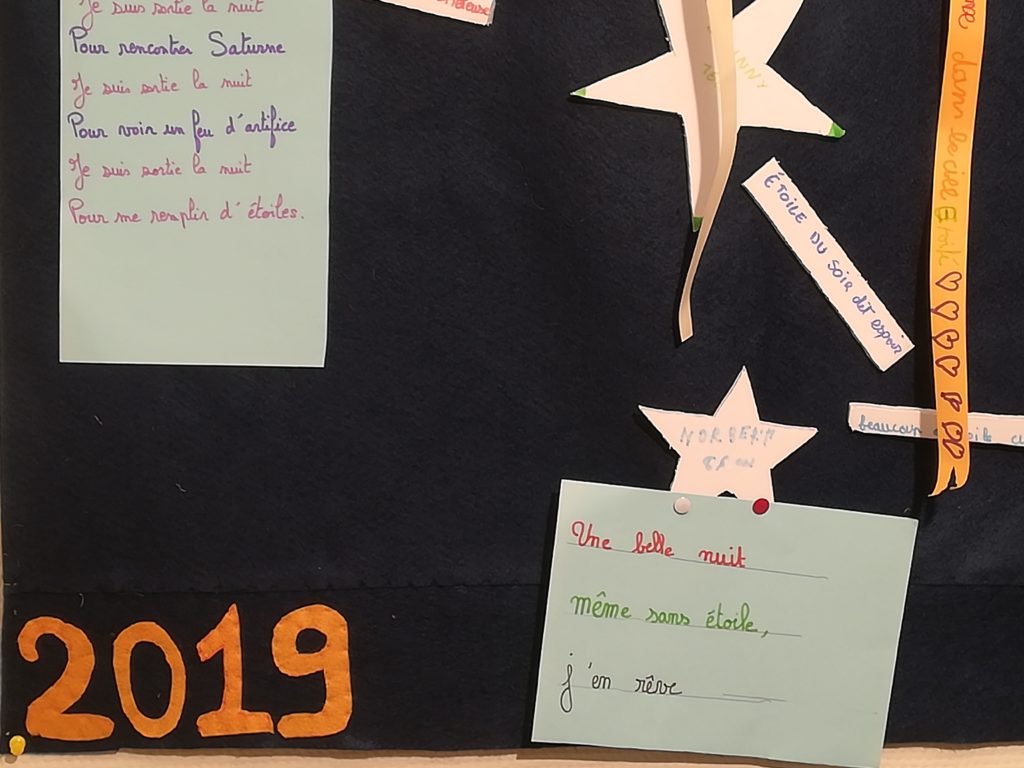 Je suis sortie la nuit
Pour rencontrer Saturne
Je suis sortie la nuit
Pour voir un feu d'artifice
Je suis sortie la nuit
Pour me remplir d'étoiles.
ÉTOILE DU SOIR dit espoir
dans le ciel Etoilé
beaucoup
NORBERT
Une belle nuit
même sans étoile,
j'en rêve
2019